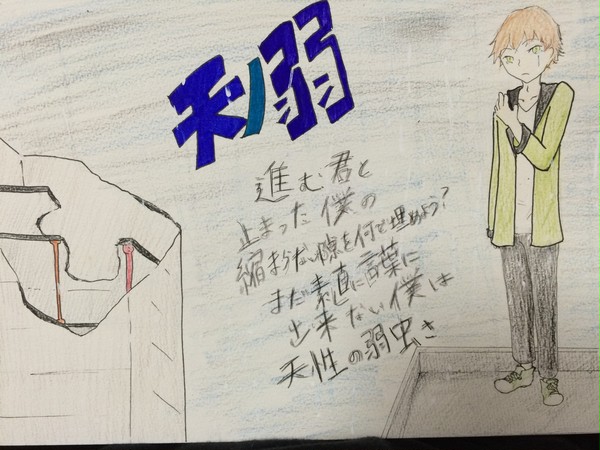 天ノ弱
進む君と
止まった僕の
縮まらない隙を何で埋めよう?
まだ素直に言葉に
出来ない僕は
天性の弱虫さ